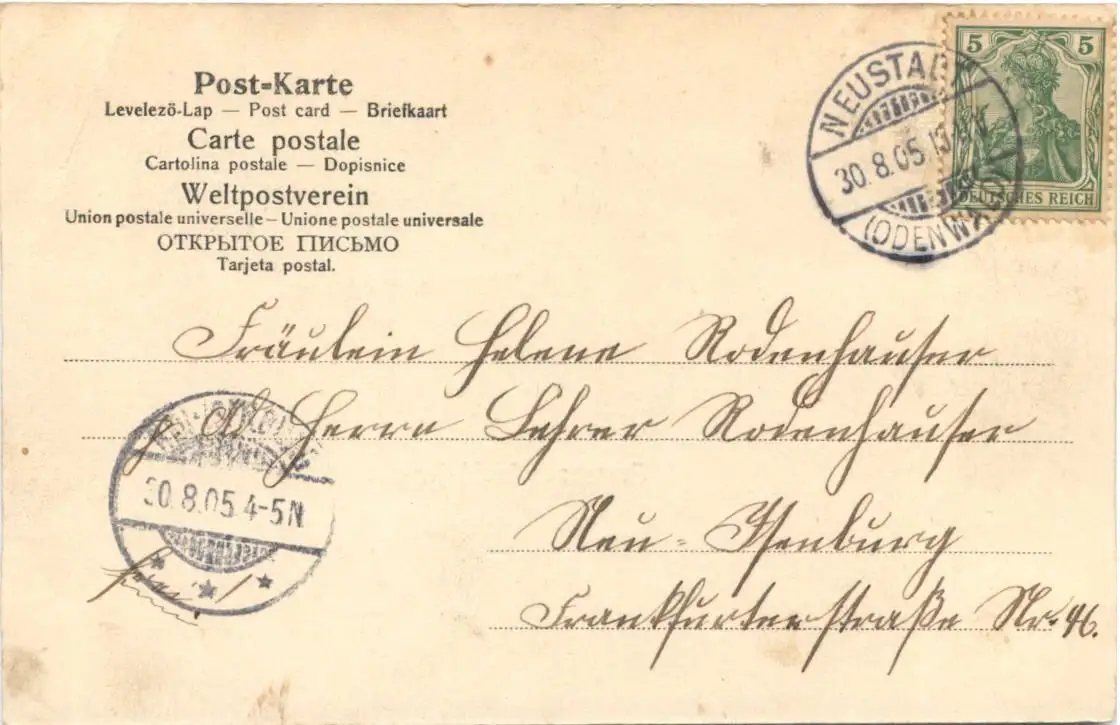 Post-Karte
Levelezö-Lap — Post card — Briefkaart
Carte postale
Cartolina postale — Dopisnice
Weltpostverein
Union postale universelle – Unione postale universale
ОТКРЫТОЕ ПИСЬМО
Tarjeta postal.
5 5
DEUTSCHES REICH
NEUSTADT
30.8.05
(ODENWALD)
Fräulein Helene Rodenhauser
Herrn Lehrer Rodenhauser
30.8.05 4-5N
Neu-Isenburg
Frankfurterstraße Nr. 46.